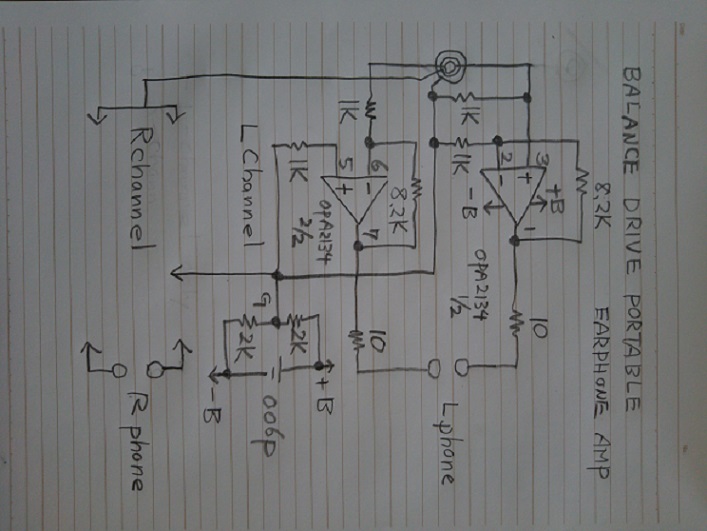 BALANCE DRIVE PORTABLE
EARPHONE AMP
8.2K
+B
3
+
1
2
-
-B
1K
1K
OPA2134
1/2
10
L phone
1K
8.2K
6
-
7
5
+
OPA2134
2/2
1K
10
L Channel
G
2K
2K
+B
006p
-B
R channel
R phone